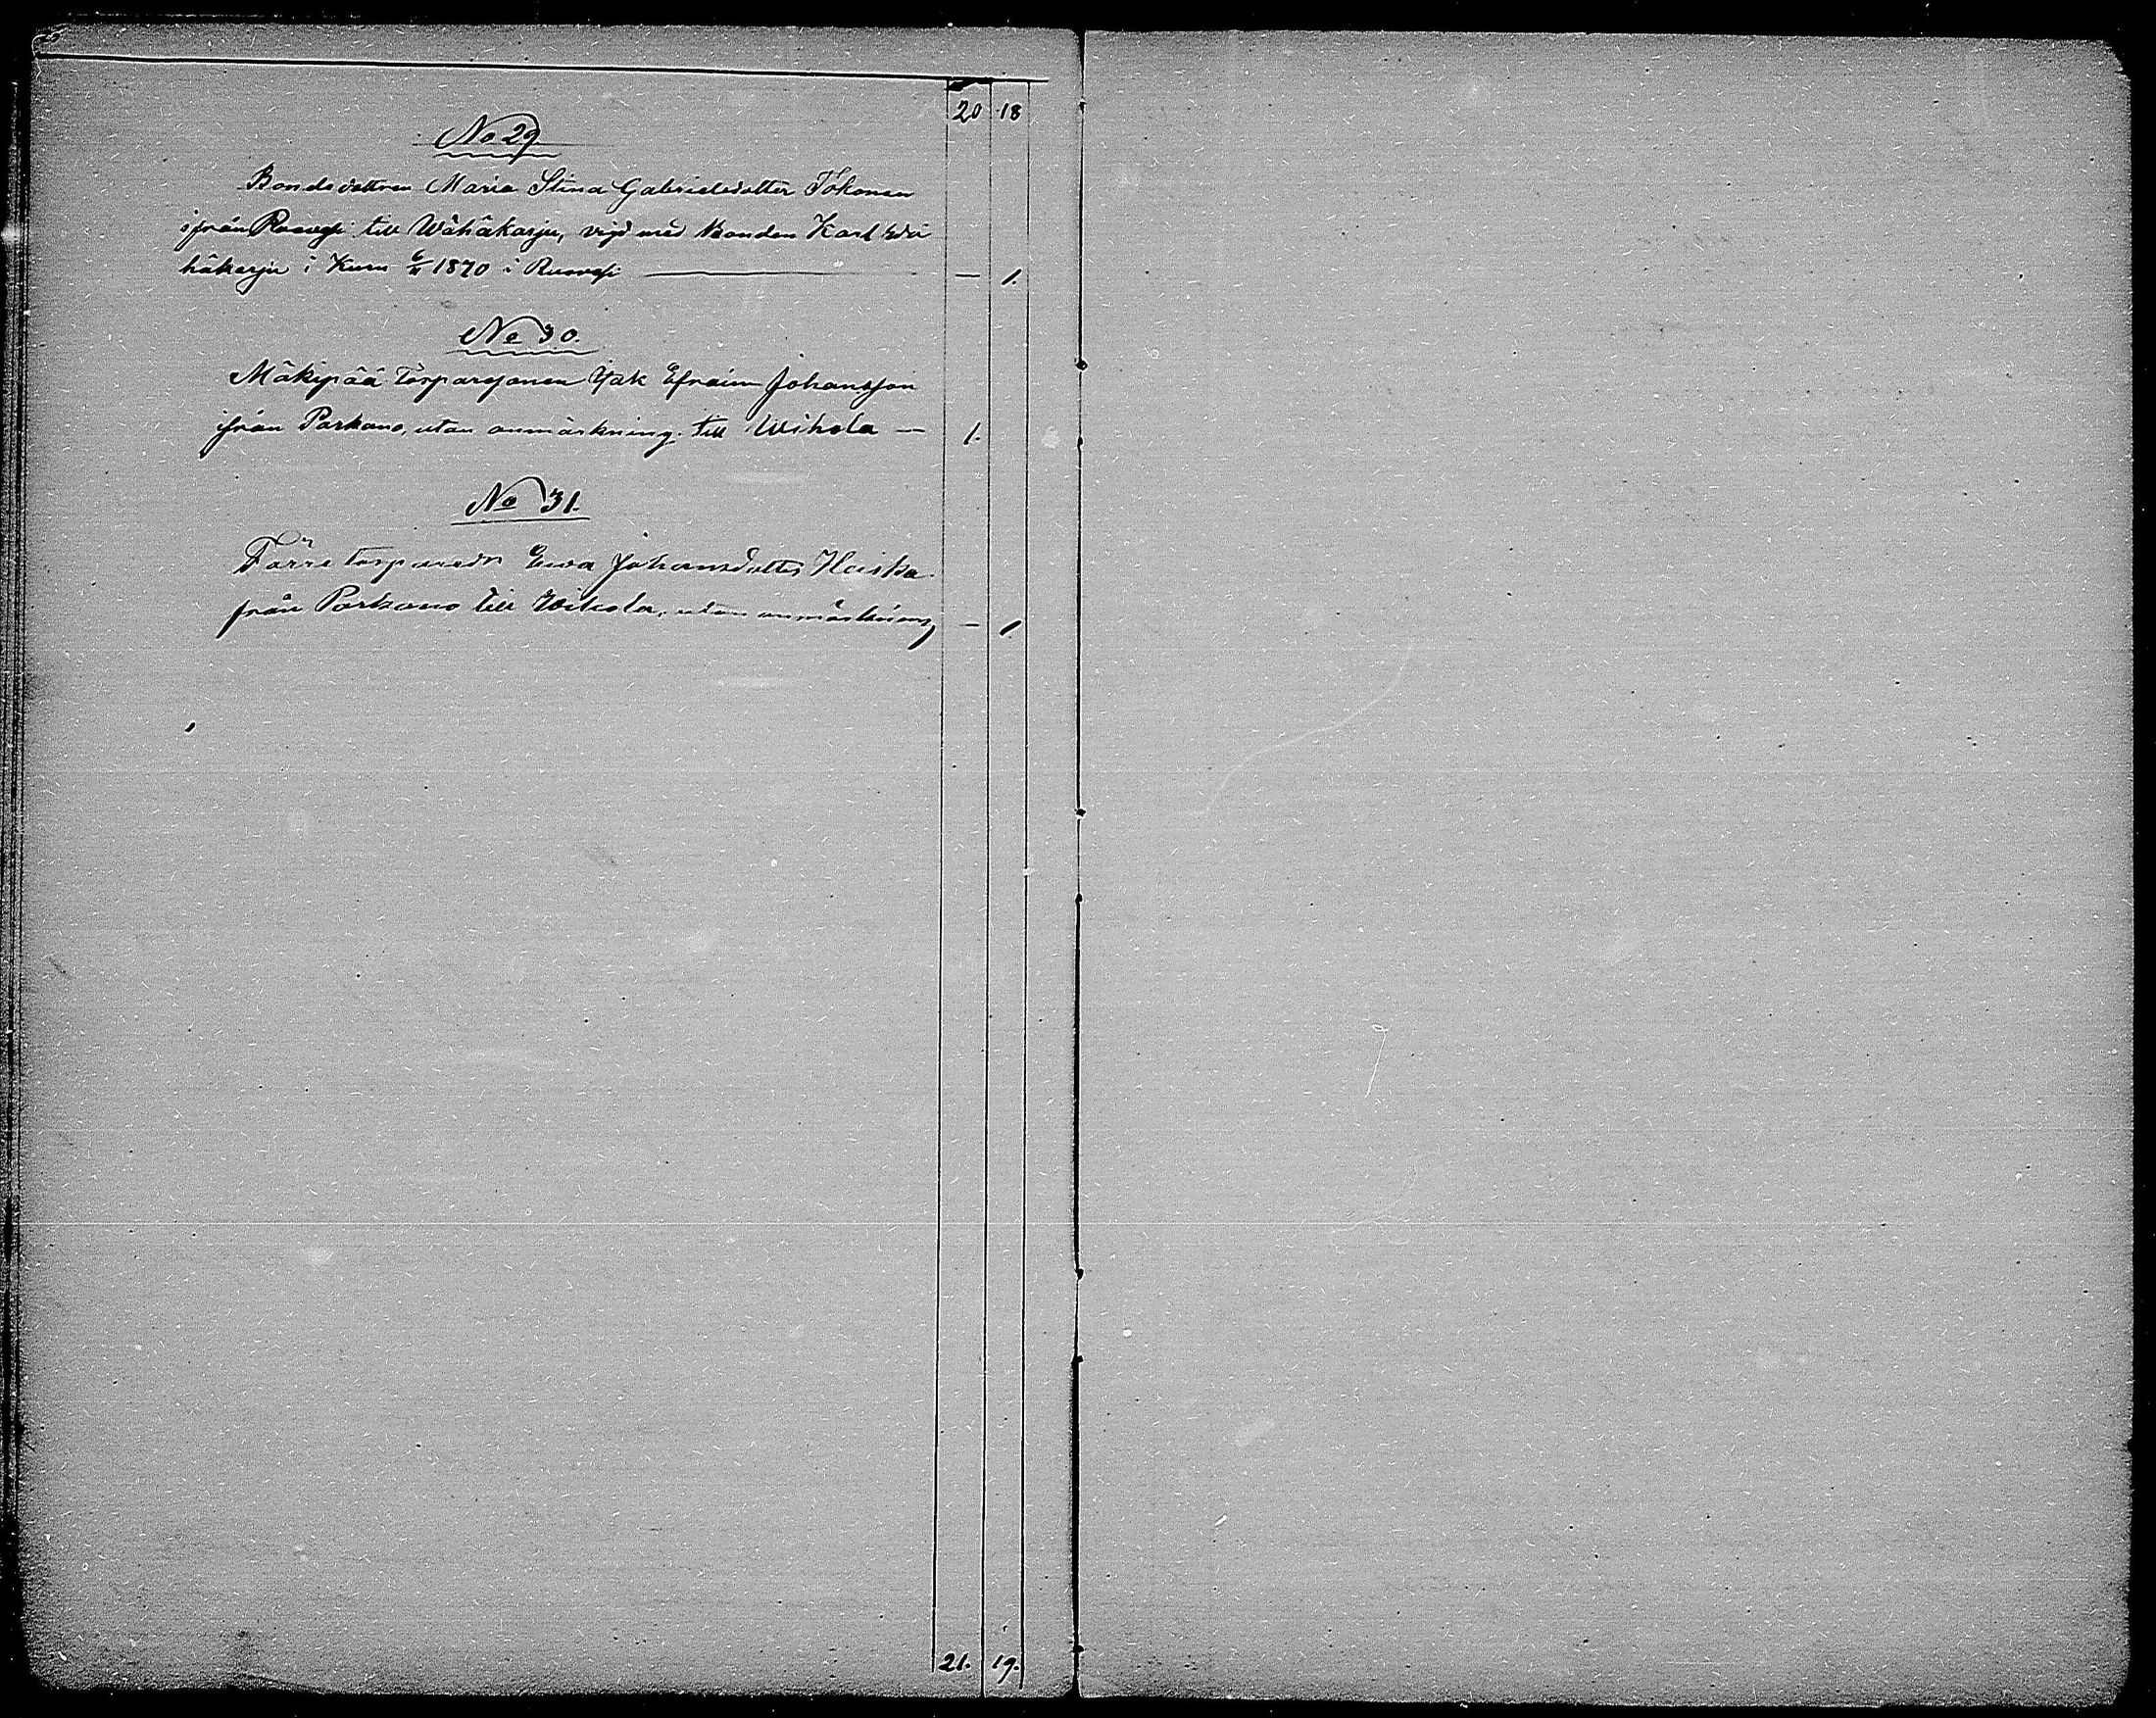 20 18
No 29
Bondedottren Maria Stina Gabrielsdotter Tokonen
ifrån Ruovesi till Wähäkarju, vigd med Bonden Karl Wä
häkarju i Kuru 6/11 1870 i Ruovesi — — 1.
No 30.
Mäkipää Torparesonen Isak Efraim Johansson
ifrån Parkano, utan anmärkning till Wihola — 1.
No 31.
Törre Ewa Johansdotter Heiska
från Parkano till Wihola, utan anmärkning — 1
21. 19.